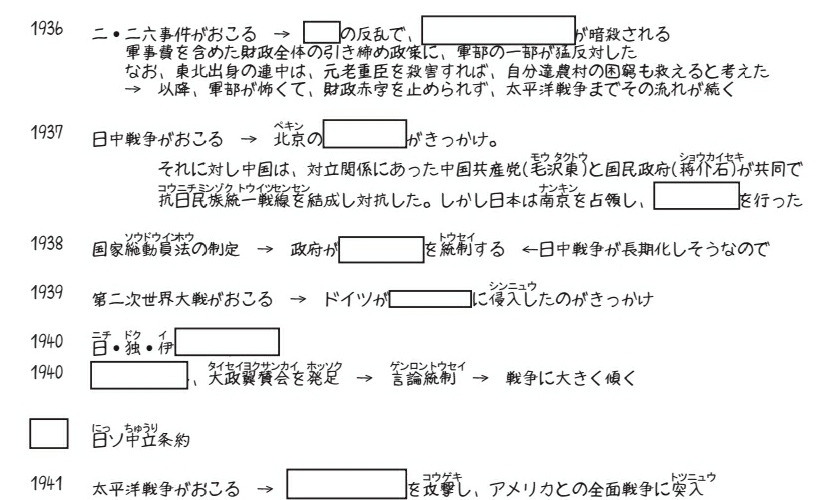 1936 二・二六事件がおこる → の反乱で、 が暗殺される
軍事費を含めた財政全体の引き締め政策に、軍部の一部が猛反対した
なお、東北出身の連中は、元老重臣を殺害すれば、自分達農村の困窮も救えると考えた
→ 以降、軍部が怖くて、財政赤字を止められず、太平洋戦争までその流れが続く
ペキン
1937 日中戦争がおこる → 北京の がきっかけ。
モウ タクトウ ショウカイセキ
それに対し中国は、対立関係にあった中国共産党(毛沢東)と国民政府(蒋介石)が共同で
コウニチミンゾク トウイツセンセン ナンキン
抗日民族統一戦線を結成し対抗した。しかし日本は南京を占領し、 を行った
ソウドウインホウ トウセイ
1938 国家総動員法の制定 → 政府が を統制する ←日中戦争が長期化しそうなので
シンニュウ
1939 第二次世界大戦がおこる → ドイツが に侵入したのがきっかけ
ニチ ドク イ
1940 日・独・伊
タイセイヨクサンカイ ホッソク ゲンロントウセイ
1940 、大政翼賛会を発足 → 言論統制 → 戦争に大きく傾く
にっ ちゅうり
日ソ中立条約
コウゲキ トツニュウ
1941 太平洋戦争がおこる → を攻撃し、アメリカとの全面戦争に突入